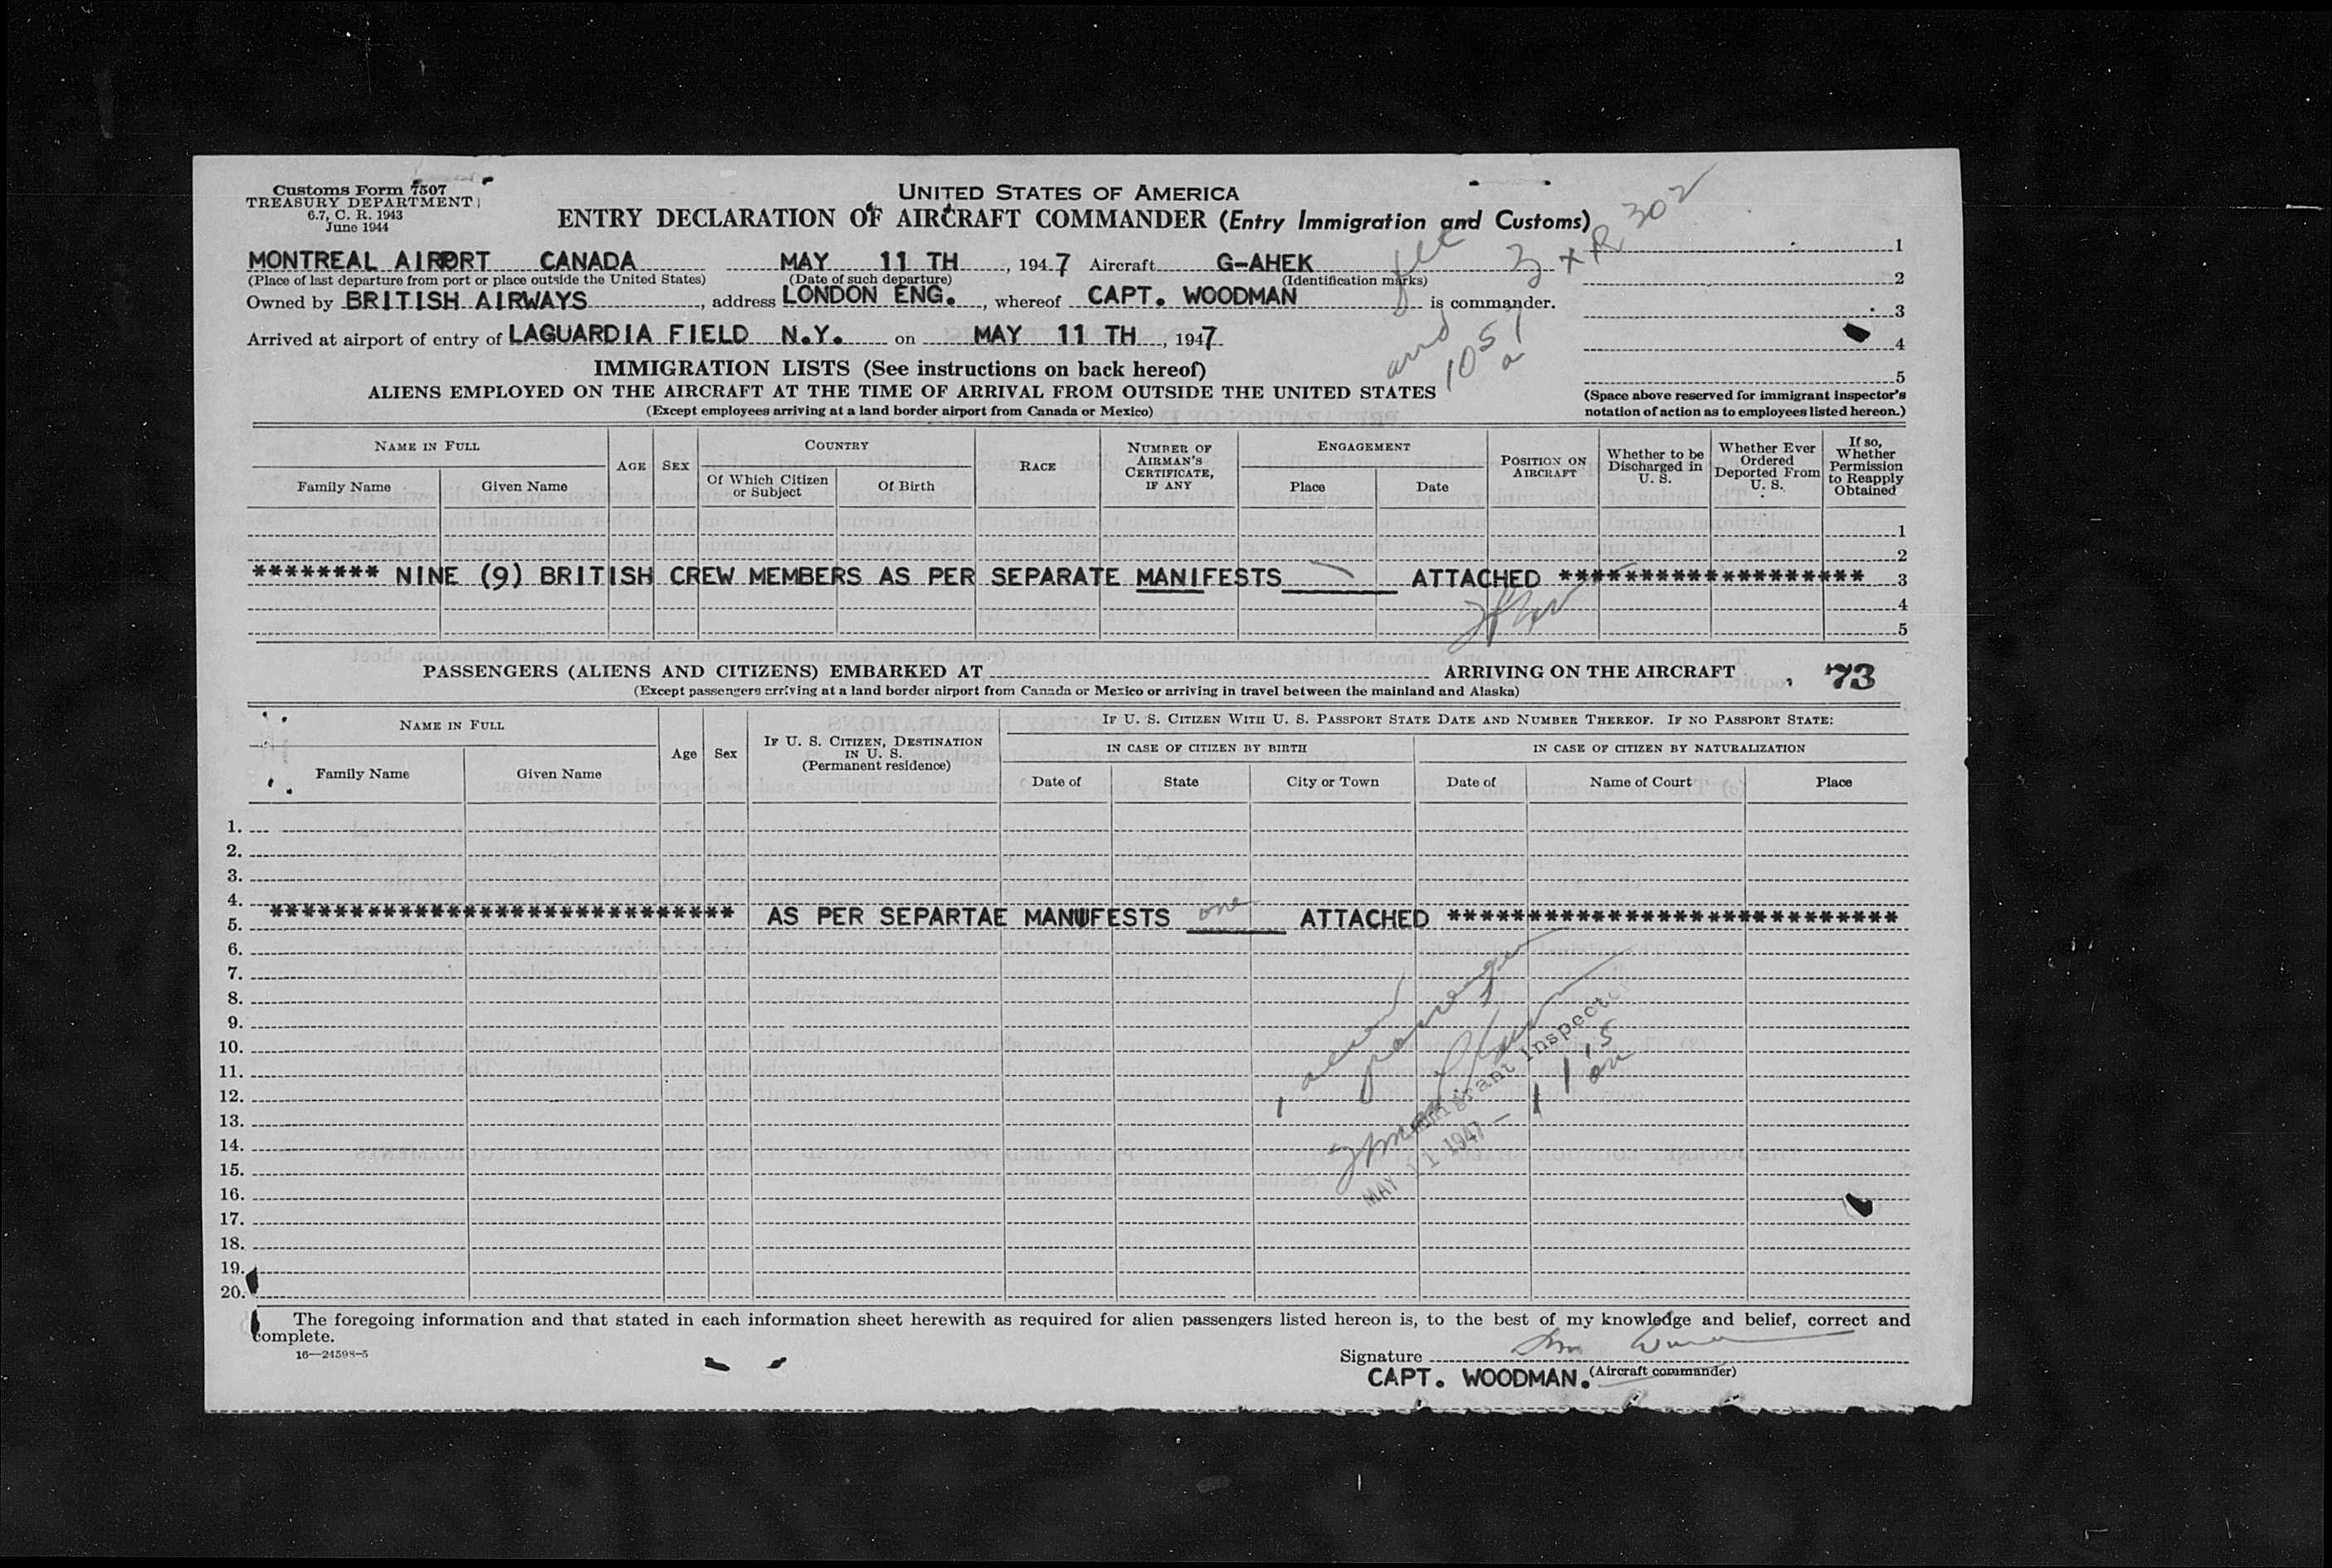 Customs Form 7507
TREASURY DEPARTMENT
6.7, C. R. 1943
June 1944
UNITED STATES OF AMERICA
ENTRY DECLARATION OF AIRCRAFT COMMANDER (Entry Immigration and Customs)
3 + R 302
MONTREAL AIRPORT CANADA MAY 11 TH, 1947 Aircraft G-AHEK
(Place of last departure from port or place outside the United States) (Date of such departure) (Identification marks)
Owned by BRITISH AIRWAYS, address LONDON ENG., whereof CAPT. WOODMAN is commander.
Arrived at airport of entry of LAGUARDIA FIELD N.Y. on MAY 11 TH, 1947
1
2
3
4
5
IMMIGRATION LISTS (See instructions on back hereof)
ALIENS EMPLOYED ON THE AIRCRAFT AT THE TIME OF ARRIVAL FROM OUTSIDE THE UNITED STATES
(Except employees arriving at a land border airport from Canada or Mexico)
(Space above reserved for immigrant inspector's
notation of action as to employees listed hereon.)
NAME IN FULL
Family Name
Given Name
AGE
SEX
COUNTRY
Of Which Citizen
or Subject
Of Birth
RACE
NUMBER OF
AIRMAN'S
CERTIFICATE,
IF ANY
ENGAGEMENT
Place
Date
POSITION ON
AIRCRAFT
Whether to be
Discharged in
U. S.
Whether Ever
Ordered
Deported From
U. S.
If so,
Whether
Permission
to Reapply
Obtained
1
2
******** NINE (9) BRITISH CREW MEMBERS AS PER SEPARATE MANIFESTS ATTACHED ******************* 3
4
5
PASSENGERS (ALIENS AND CITIZENS) EMBARKED AT ARRIVING ON THE AIRCRAFT 73
(Except passengers arriving at a land border airport from Canada or Mexico or arriving in travel between the mainland and Alaska)
NAME IN FULL
Family Name
Given Name
Age
Sex
IF U. S. CITIZEN, DESTINATION
IN U. S.
(Permanent residence)
IF U. S. CITIZEN WITH U. S. PASSPORT STATE DATE AND NUMBER THEREOF. IF NO PASSPORT STATE:
IN CASE OF CITIZEN BY BIRTH
IN CASE OF CITIZEN BY NATURALIZATION
Date of
State
City or Town
Date of
Name of Court
Place
1.
2.
3.
4.
5. ***************************** AS PER SEPARTAE MANUFESTS one ATTACHED ****************************
6.
7.
8.
9.
10.
11.
12.
13.
14.
15.
16.
17.
18.
19.
20.
passenger
Immigrant Inspector
MAY 11 1947
The foregoing information and that stated in each information sheet herewith as required for alien passengers listed hereon is, to the best of my knowledge and belief, correct and
complete.
16—24598-5
Signature
CAPT. WOODMAN. (Aircraft commander)